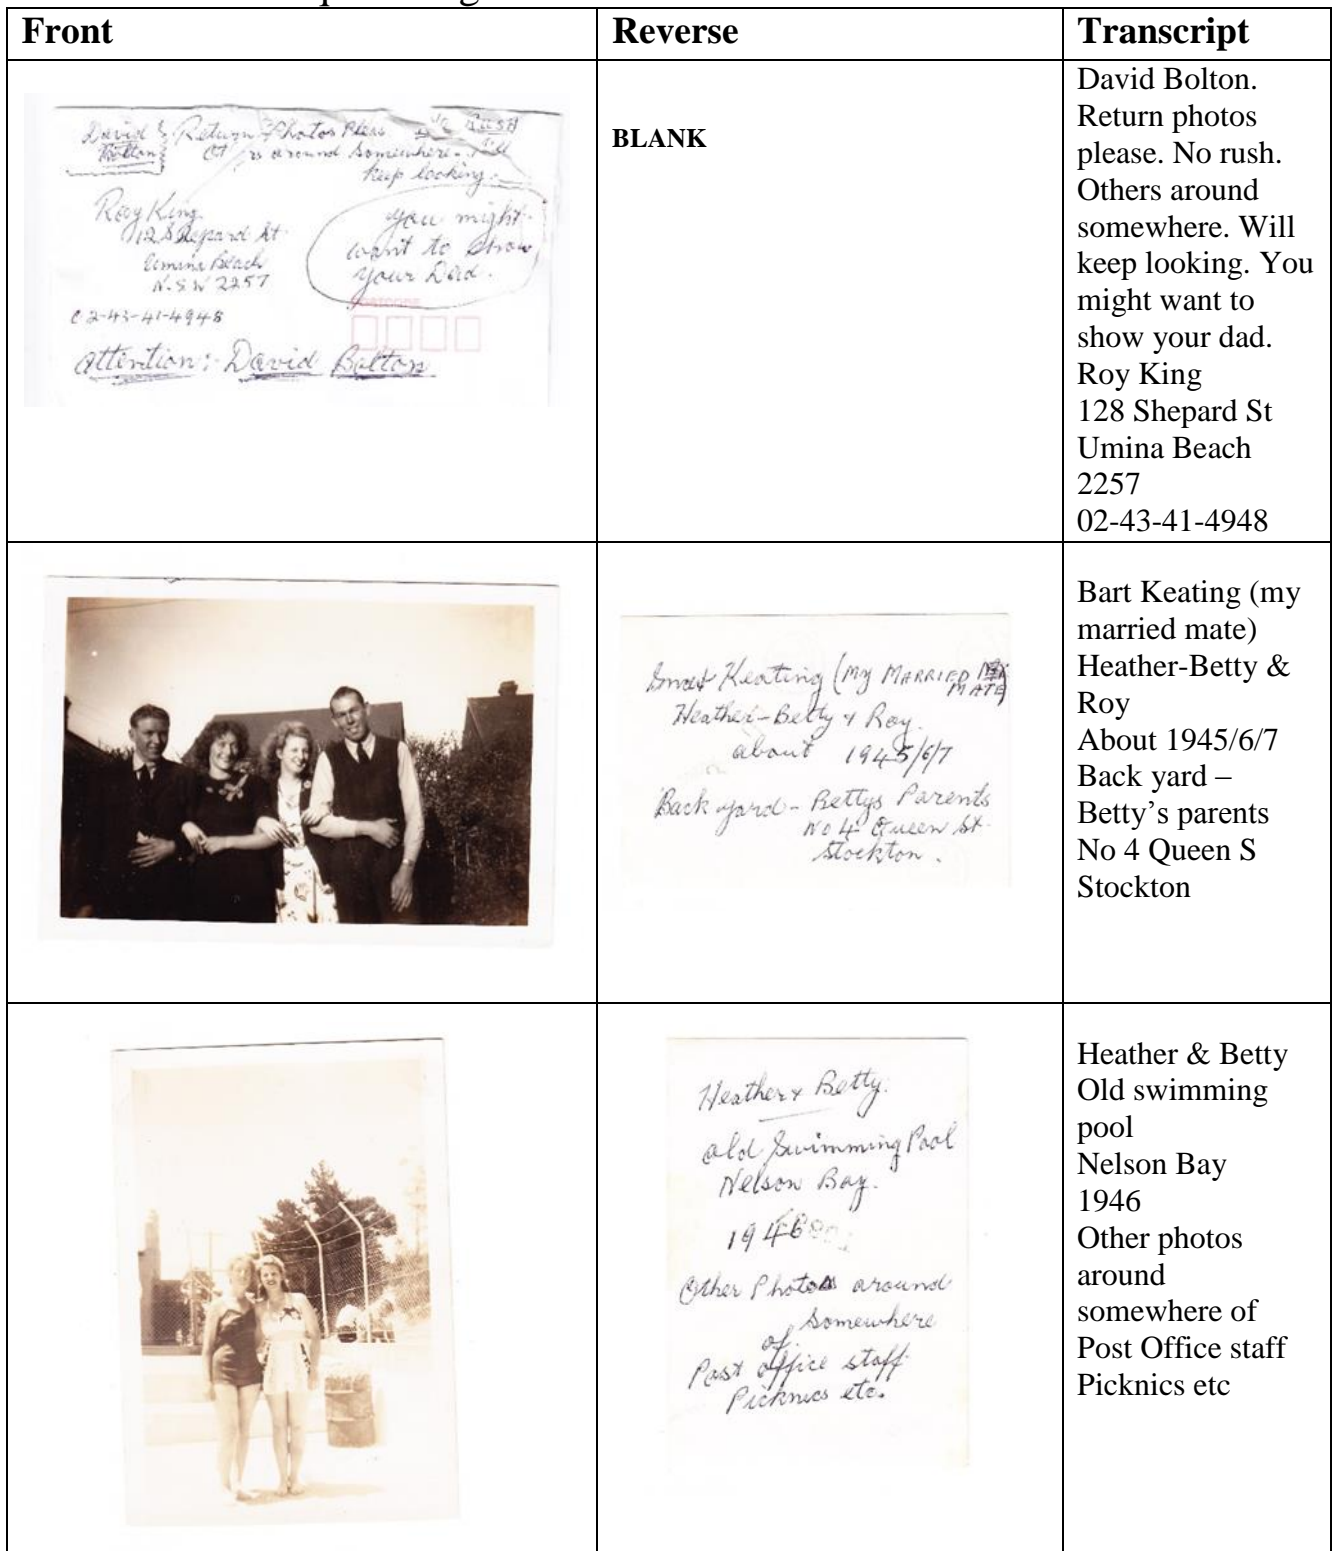 Front
Reverse
Transcript
David
Bolton
Return Photos Pleas
Rush
around Somewhere - 
keep looking.
Roy King.
Shepard St
Umina Beach
N.S.W 2257
you might
want to show
your Dad.
POSTCODE
2-43-41-4948
Attention: David Bolton
BLANK
David Bolton.
Return photos
please. No rush.
Others around
somewhere. Will
keep looking. You
might want to
show your dad.
Roy King
128 Shepard St
Umina Beach
2257
02-43-41-4948
Keating (My MARRIED
MATE)
Heather-Betty & Roy.
about 1945/6/7
Back yard - Bettys Parents
No 4 Queen St.
Stockton.
Bart Keating (my
married mate)
Heather-Betty &
Roy
About 1945/6/7
Back yard –
Betty’s parents
No 4 Queen S
Stockton
Heather & Betty.
Old Swimming Pool
Nelson Bay.
1946
Other Photos around
Somewhere
of.
Post Office staff
Picknics etc.
Heather & Betty
Old swimming
pool
Nelson Bay
1946
Other photos
around
somewhere of
Post Office staff
Picknics etc